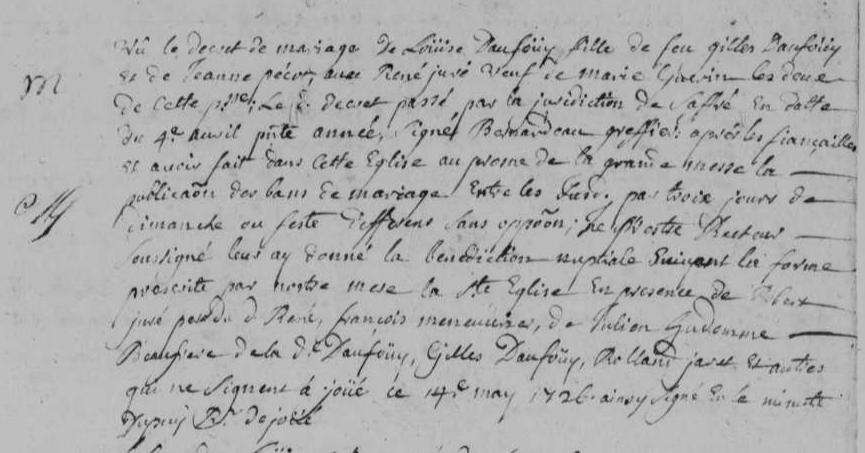 M
Vû le decret de mariage de Loüise Daufoüy fille de feu gilles Daufoüy
et de Jeanne pécot, avec René juré veuf de marie Guerin les deux
de cette psse; Le d. decret passé par la juridiction de Saffré En datte
du 4e avril pnte année, signé Bernardeau greffier; aprés les fiançailles
et avoir fait dans cette Eglise au prosne de la grande messe la
publicaõn des bans de mariage Entre les susd. par trois jours de
dimanche ou feste differens sans oppoõn; je prestre Recteur
soussigné leur ay donné la benediction nuptiale suivant la forme
prescrite par nostre mere la Ste Eglise En presence de
juré pere du d. René, françois menuisier, de Julien
Beaufrere de la d. Daufoüy, Gilles Daufoüy, Rolland jaret et autres
qui ne signent á joüé ce 14e may 1726 ainsy signé En le minutte
Dupuy Rr de joüé